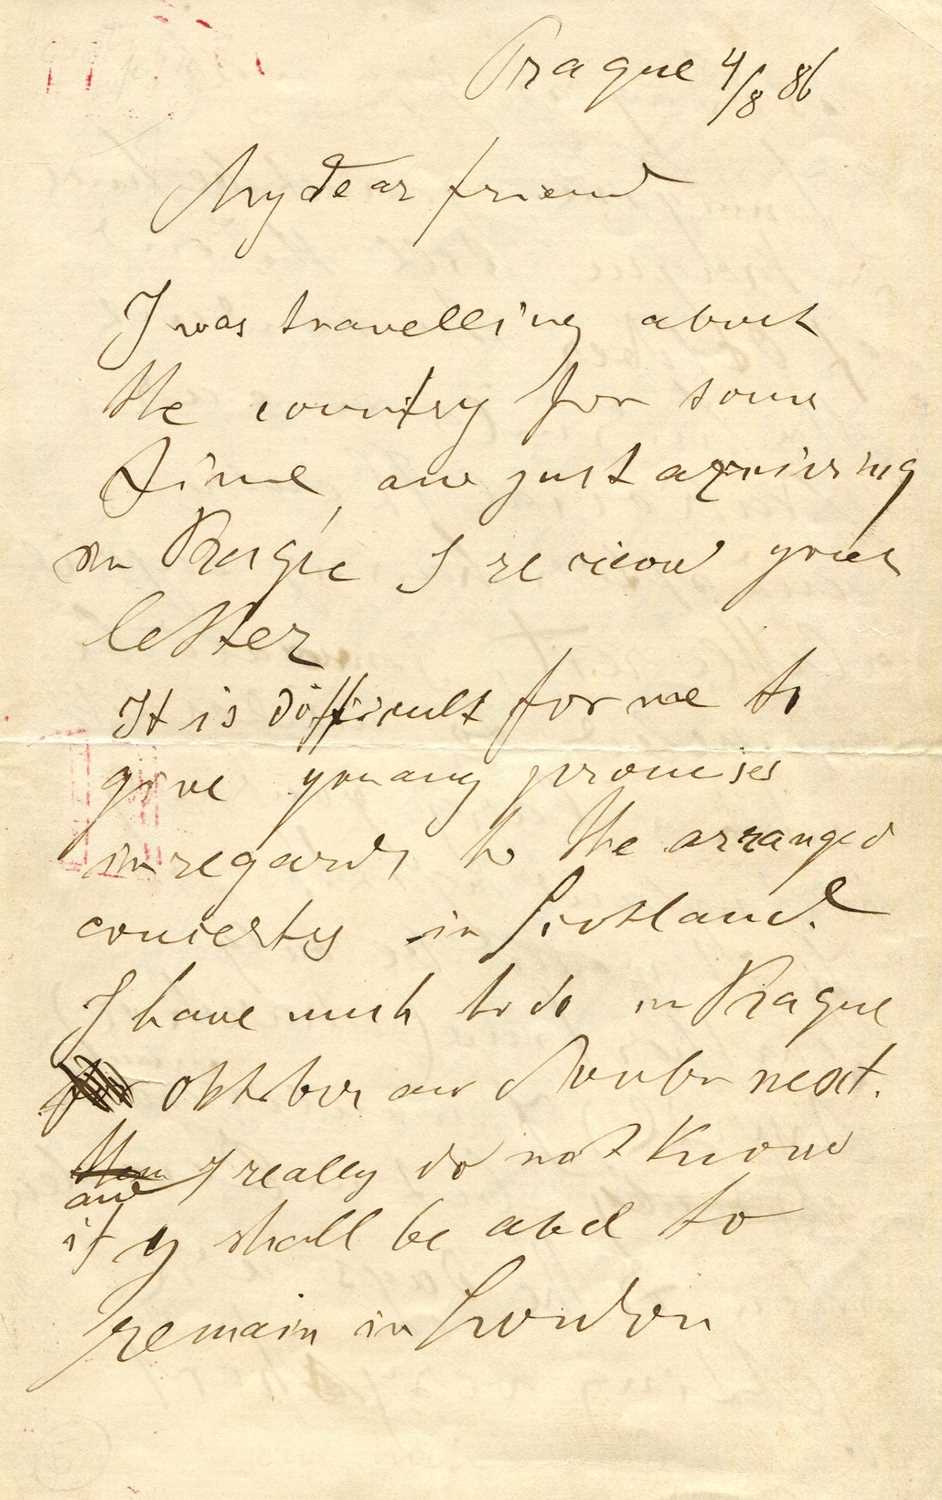 Prague 4/8 86
My dear friend
I was travelling about
the country for some
time, and just arriving
in Prague I recieved your
letter
It is difficult for me to
give you any promises
in regards to the arranged
concerts in Scotland.
I have much to do in Prague
Oktober and next.
and I really do not know
if I shall be abel to
remain in London